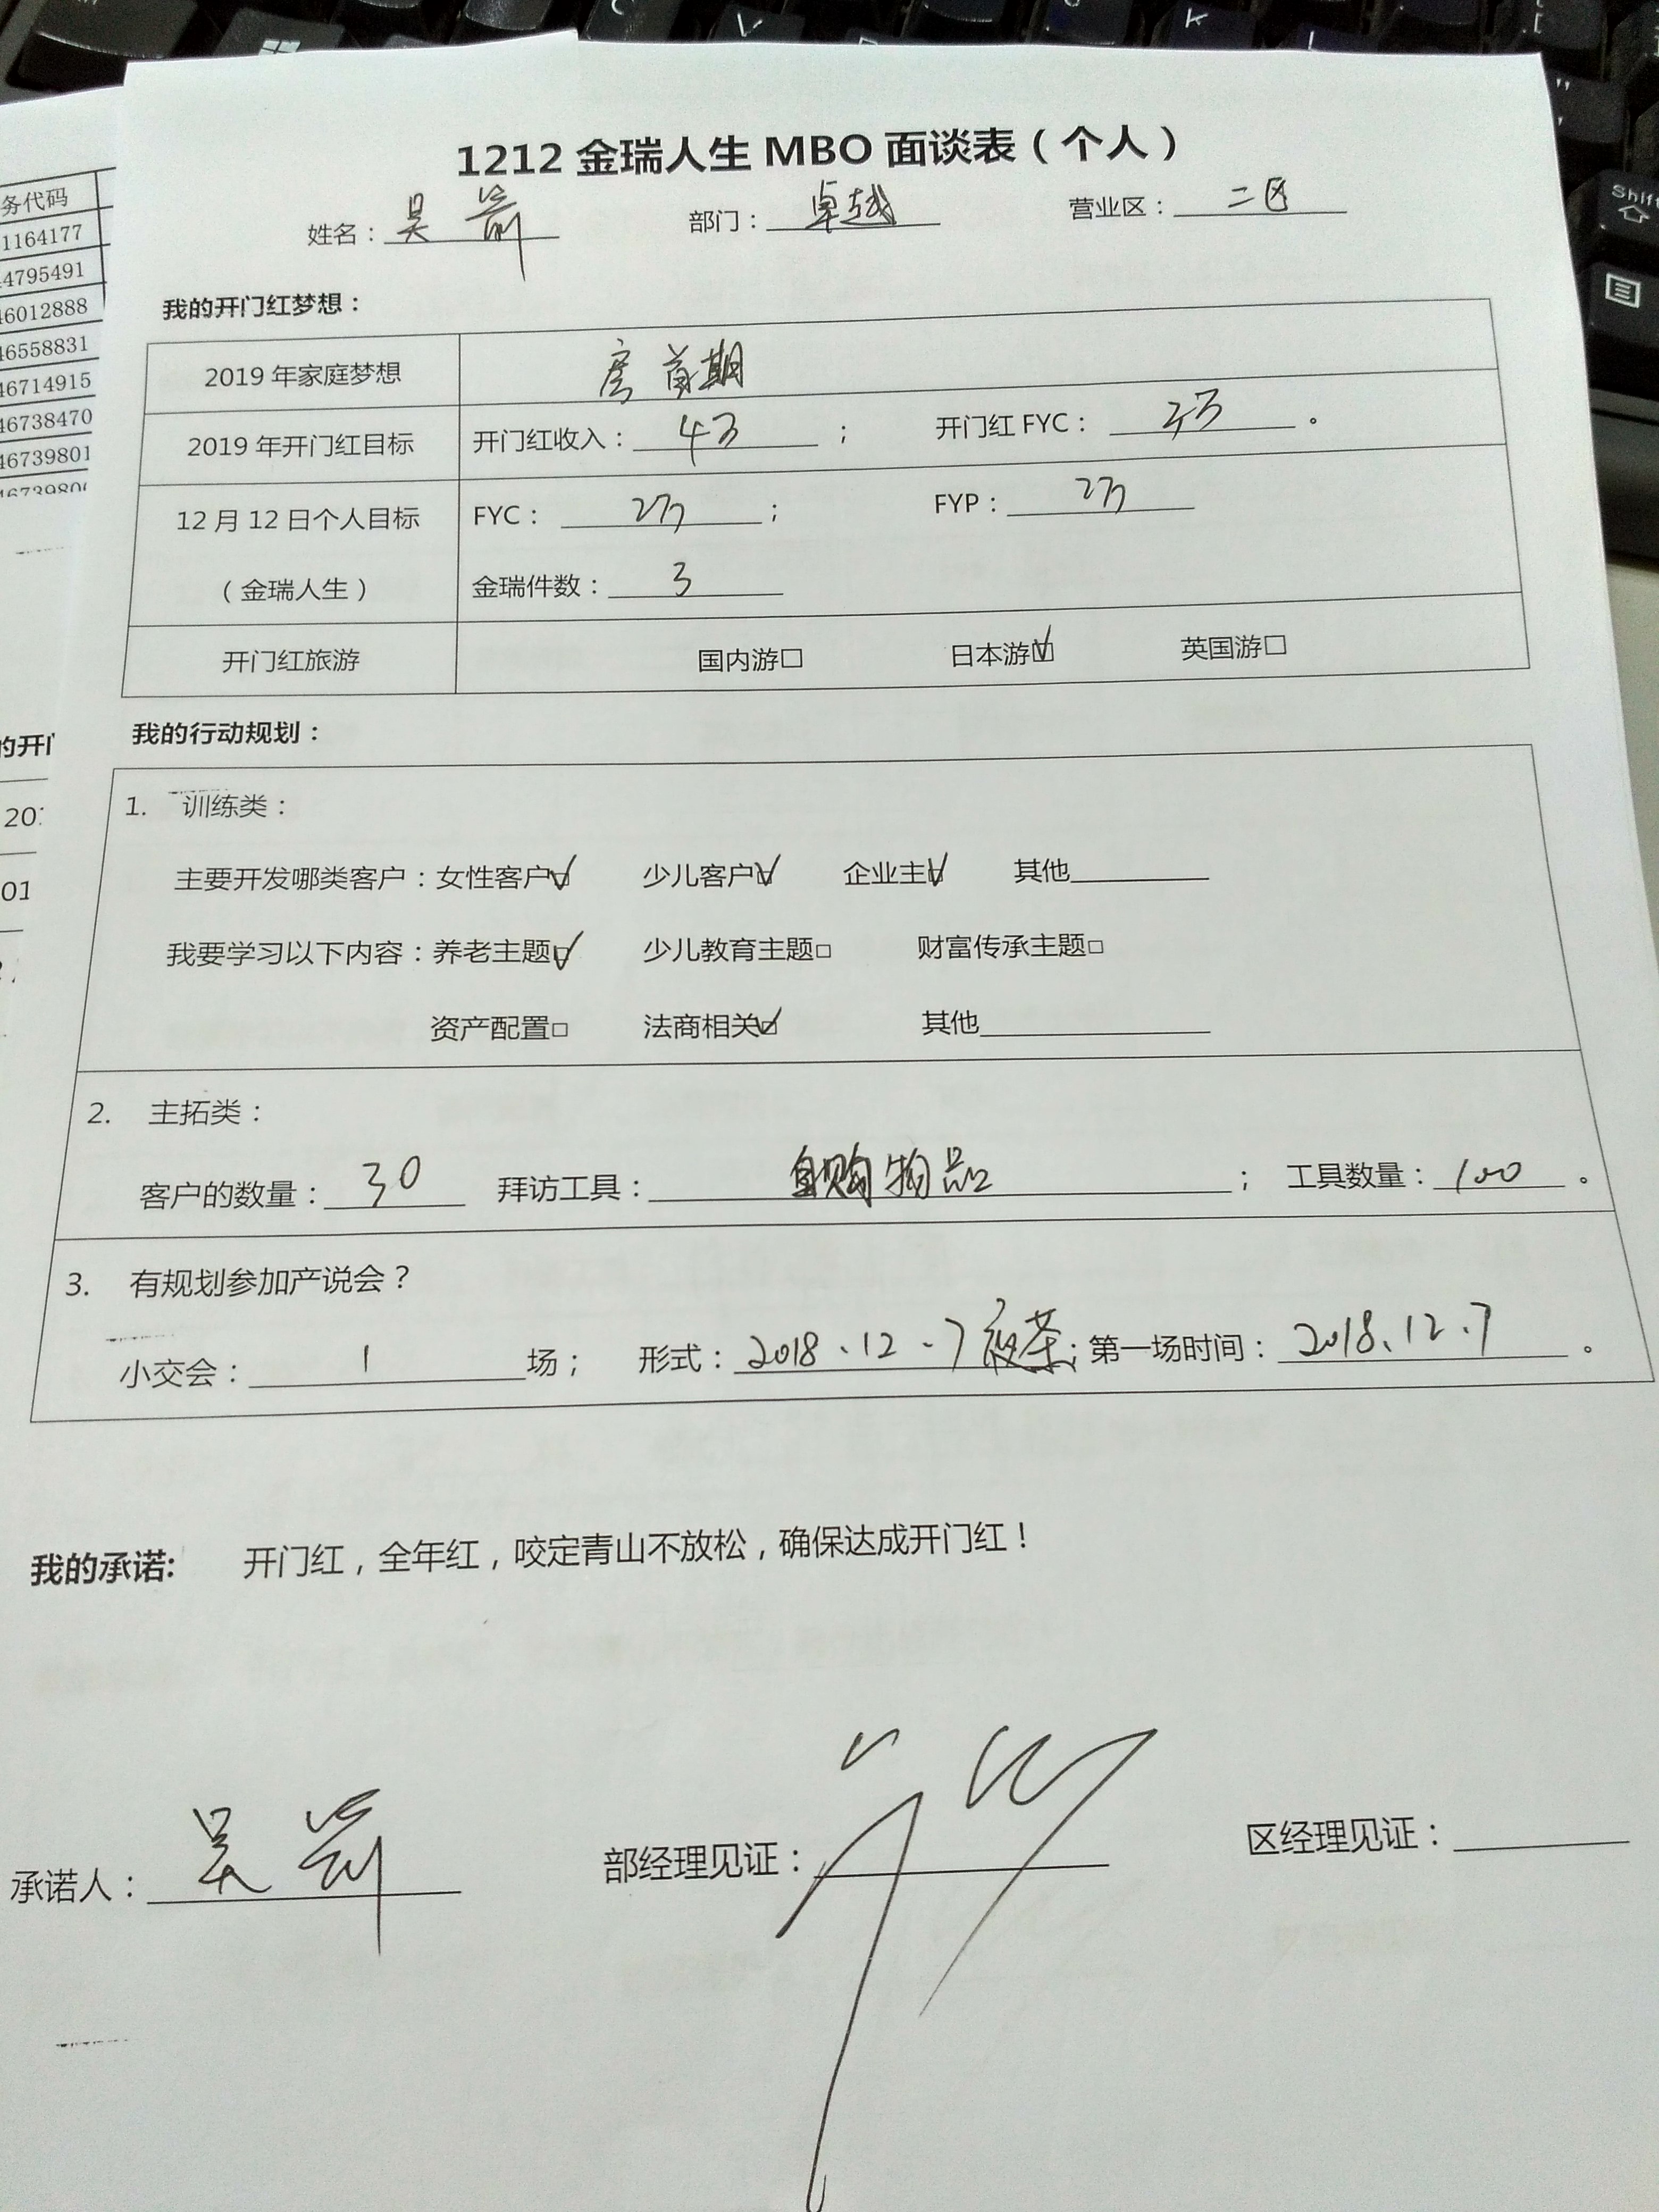 1212 金瑞人生 MBO 面谈表（个人）
姓名：吴 部门：卓越 营业区：二区
我的开门红梦想：
2019 年家庭梦想 房首期
2019 年开门红目标 开门红收入：4万； 开门红 FYC：2万。
12 月 12 日个人目标 FYC：2万； FYP：2万
（金瑞人生） 金瑞件数：3
开门红旅游 国内游□ 日本游☑ 英国游□
我的行动规划：
1. 训练类：
主要开发哪类客户：女性客户☑ 少儿客户☑ 企业主☑ 其他
我要学习以下内容：养老主题☑ 少儿教育主题□ 财富传承主题□
资产配置□ 法商相关☑ 其他
2. 主拓类：
客户的数量：30 拜访工具：自购物品； 工具数量：100。
3. 有规划参加产说会？
小交会：1场； 形式：2018.12.7夜茶；第一场时间：2018.12.7。
我的承诺: 开门红，全年红，咬定青山不放松，确保达成开门红！
承诺人：吴 部经理见证： 区经理见证：
务代码
1164177
4795491
46012888
46558831
46714915
46738470
46739801
的开门
201
01